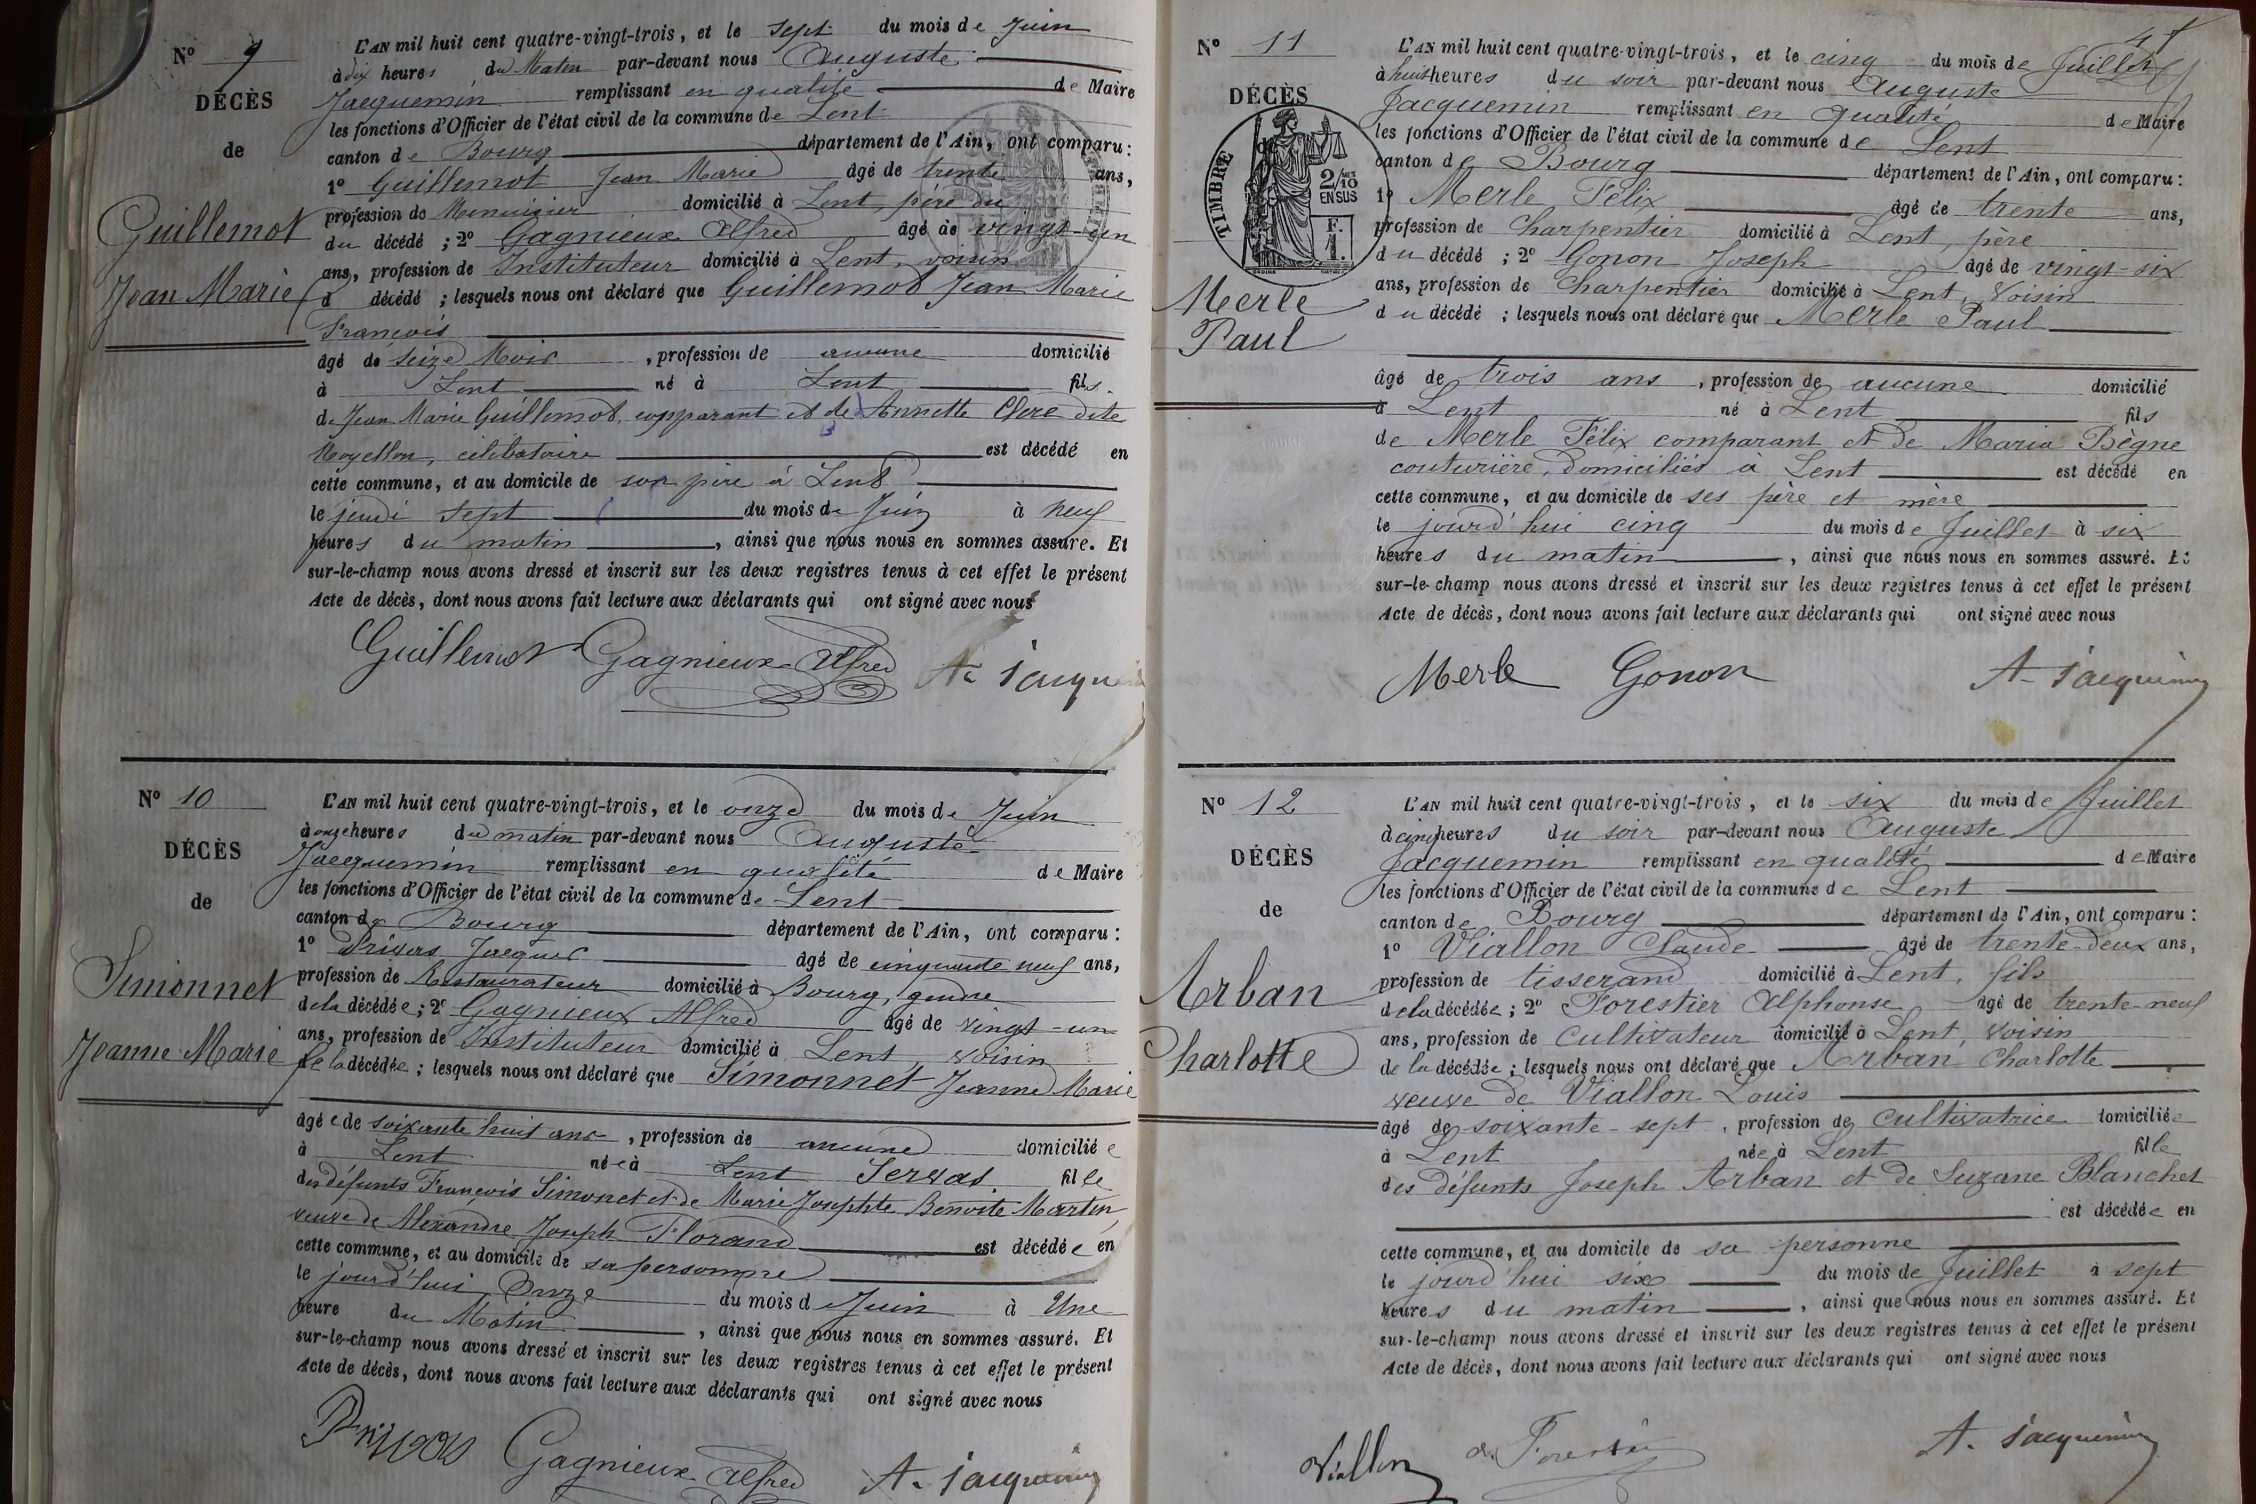 N° 9
DÉCÈS
de
Guillemot
Jean Marie
L'AN mil huit cent quatre-vingt-trois, et le sept du mois de Juin
à dix heures du Matin par-devant nous Auguste
Jacquemin remplissant en qualité de Maire
les fonctions d'Officier de l'état civil de la commune de Lent
canton de Bourg département de l'Ain, ont comparu :
1° Guillemot Jean Marie âgé de trente ans,
profession de Menuisier domicilié à Lent, père du
du décédé ; 2° Gagnieux Alfred âgé de vingt-un
ans, profession de Instituteur domicilié à Lent, voisin
d décédé ; lesquels nous ont déclaré que Guillemot Jean Marie
François
âgé de seize Mois, profession de aucune domicilié
à Lent né à Lent fils
de Jean Marie Guillemot, comparant et de Annette Clere dite
Moyellon, célibataire est décédé en
cette commune, et au domicile de son père à Lent
le jeudi sept du mois de Juin à neuf
heures du matin, ainsi que nous nous en sommes assuré. Et
sur-le-champ nous avons dressé et inscrit sur les deux registres tenus à cet effet le présent
Acte de décès, dont nous avons fait lecture aux déclarants qui ont signé avec nous
Guillemot Gagnieux Alfred A. Jacque
N° 10
DÉCÈS
de
Simonnet
Jeanne Marie
L'AN mil huit cent quatre-vingt-trois, et le onze du mois de Juin
à onze heures du matin par-devant nous Auguste
Jacquemin remplissant en qualité de Maire
les fonctions d'Officier de l'état civil de la commune de Lent
canton de Bourg département de l'Ain, ont comparu :
1° Privas Jacques âgé de cinquante neuf ans,
profession de Restaurateur domicilié à Bourg, gendre
de la décédée ; 2° Gagnieux Alfred âgé de vingt-un
ans, profession de Instituteur domicilié à Lent, voisin
de la décédée ; lesquels nous ont déclaré que Simonnet Jeanne Marie
âgée de soixante huit ans, profession de aucune domiciliée
à Lent née à Lent Servas fille
des défunts François Simonet et de Marie Josephte Benoite Martin,
veuve de Alexandre Joseph Florand est décédée en
cette commune, et au domicile de sa personne
le jourd'hui Onze du mois d Juin à Une
heure du Matin, ainsi que nous nous en sommes assuré. Et
sur-le-champ nous avons dressé et inscrit sur les deux registres tenus à cet effet le présent
Acte de décès, dont nous avons fait lecture aux déclarants qui ont signé avec nous
Privas Gagnieux Alfred A. Jacquemin
N° 11
DÉCÈS
de
TIMBRE
2/10
EN SUS
F.
1.
Merle
Paul
L'AN mil huit cent quatre-vingt-trois, et le cinq du mois de Juillet
à huit heures du soir par-devant nous Auguste
Jacquemin remplissant en qualité de Maire
les fonctions d'Officier de l'état civil de la commune de Lent
canton de Bourg département de l'Ain, ont comparu :
1° Merle Félix âgé de trente ans,
profession de Charpentier domicilié à Lent, père
du décédé ; 2° Gonon Joseph âgé de vingt-six
ans, profession de Charpentier domicilié à Lent, voisin
du décédé ; lesquels nous ont déclaré que Merle Paul
âgé de trois ans, profession de aucune domicilié
à Lent né à Lent fils
de Merle Félix comparant et de Maria Bègne
couturière, domiciliés à Lent est décédé en
cette commune, et au domicile de ses père et mère
le jourd'hui cinq du mois de Juillet à six
heures du matin, ainsi que nous nous en sommes assuré. Et
sur-le-champ nous avons dressé et inscrit sur les deux registres tenus à cet effet le présent
Acte de décès, dont nous avons fait lecture aux déclarants qui ont signé avec nous
Merle Gonon A. Jacquemin
N° 12
DÉCÈS
de
Arban
Charlotte
L'AN mil huit cent quatre-vingt-trois, et le six du mois de Juillet
à cinq heures du soir par-devant nous Auguste
Jacquemin remplissant en qualité de Maire
les fonctions d'Officier de l'état civil de la commune de Lent
canton de Bourg département de l'Ain, ont comparu :
1° Viallon Claude âgé de trente-deux ans,
profession de tisserand domicilié à Lent, fils
de la décédée ; 2° Forestier Alphonse âgé de trente-neuf
ans, profession de Cultivateur domicilié à Lent, voisin
de la décédée ; lesquels nous ont déclaré que Arban Charlotte
veuve de Viallon Louis
âgé de soixante-sept, profession de Cultivatrice domiciliée
à Lent née à Lent fille
des défunts Joseph Arban et de Suzane Blanchet
est décédée en
cette commune, et au domicile de sa personne
le jourd'hui six du mois de Juillet à sept
heures du matin, ainsi que nous nous en sommes assuré. Et
sur-le-champ nous avons dressé et inscrit sur les deux registres tenus à cet effet le présent
Acte de décès, dont nous avons fait lecture aux déclarants qui ont signé avec nous
Viallon A. Jacquemin